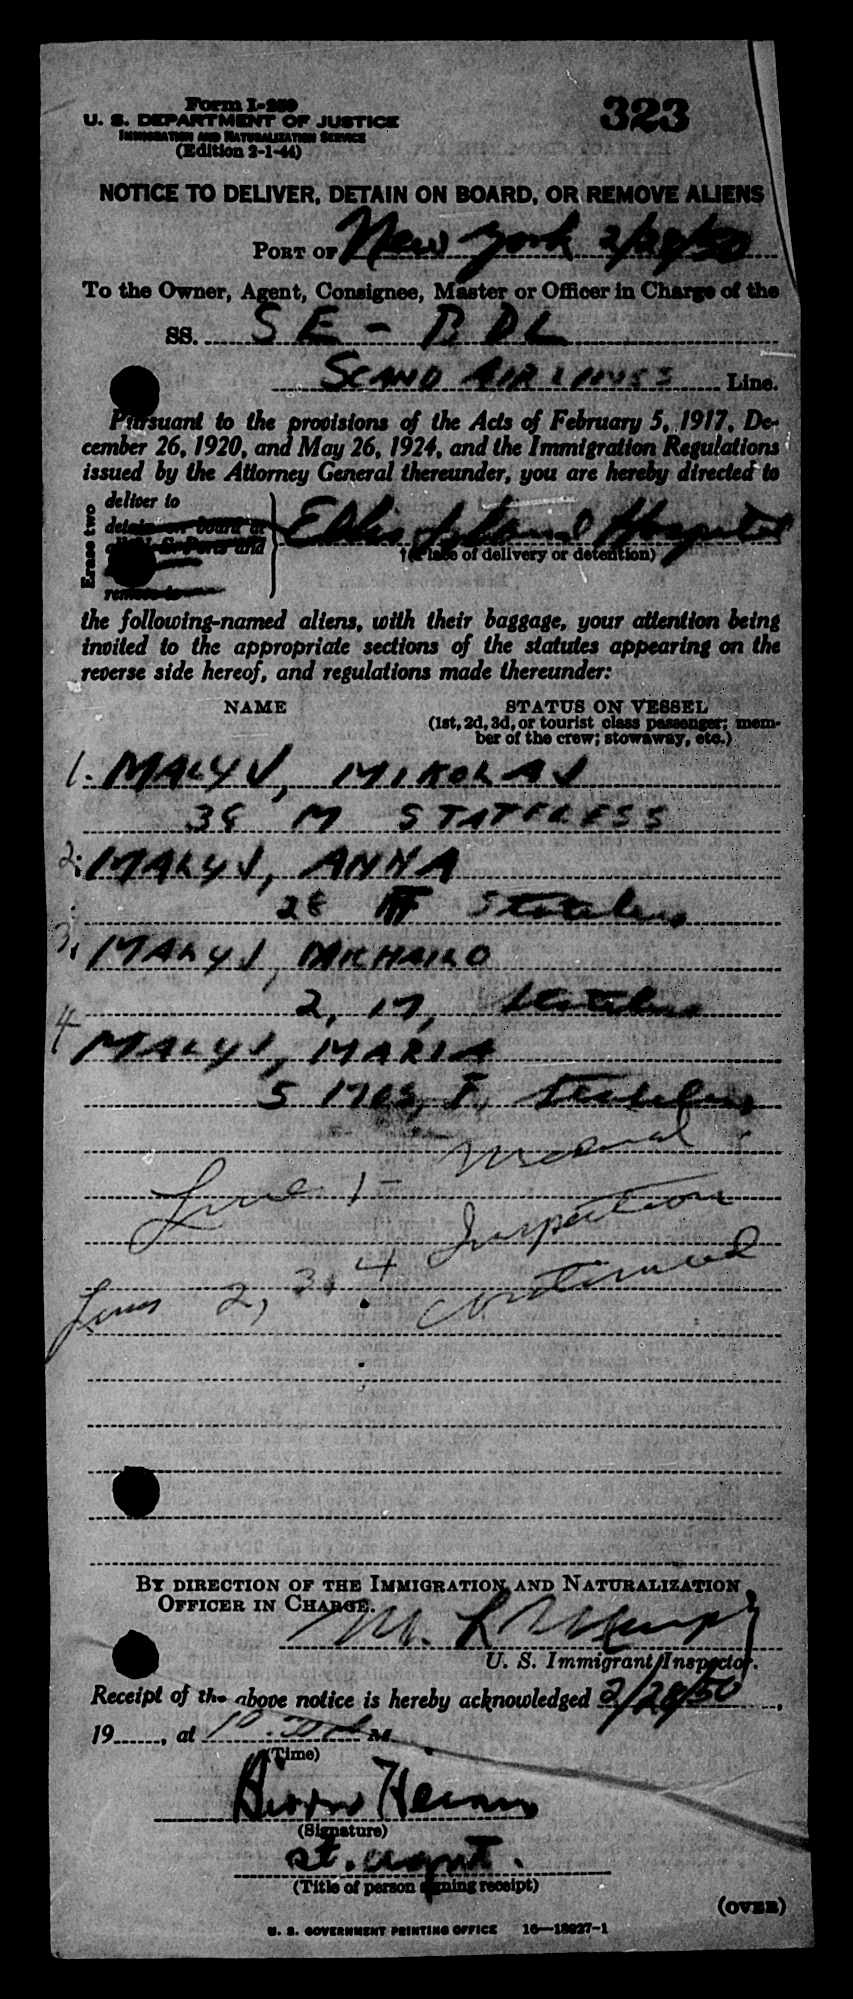 Form I-259
323
U. S. DEPARTMENT OF JUSTICE
IMMIGRATION AND NATURALIZATION SERVICE
(Edition 2-1-44)
NOTICE TO DELIVER, DETAIN ON BOARD, OR REMOVE ALIENS
PORT OF New York 2/28/50
To the Owner, Agent, Consignee, Master or Officer in Charge of the
SS. SE - BDL
SCAND AIRLINES Line.
Pursuant to the provisions of the Acts of February 5, 1917, De-
cember 26, 1920, and May 26, 1924, and the Immigration Regulations
issued by the Attorney General thereunder, you are hereby directed to
Erase two
deliver to
detain on board at
all U. S. Ports and
remove to
Ellis Island Hospital
†(Place of delivery or detention)
the following-named aliens, with their baggage, your attention being
invited to the appropriate sections of the statutes appearing on the
reverse side hereof, and regulations made thereunder:
NAME STATUS ON VESSEL
(1st, 2d, 3d, or tourist class passenger; mem-
ber of the crew; stowaway, etc.)
1. MALYJ, MIKOLAJ
38 M STATELESS
2. MALYJ, ANNA
28 F Stateless
3. MALYJ, MICHAILO
2, M, Stateless
4 MALYJ, MARIA
5 MOS, F, Stateless
Line 1 - Medical
Inspection
Lines 2, 3 & 4 continued
BY DIRECTION OF THE IMMIGRATION AND NATURALIZATION
OFFICER IN CHARGE.
M. L.
U. S. Immigrant Inspector.
Receipt of the above notice is hereby acknowledged 2/28/50,
19......, at 10 M.
(Time)
(Signature)
st. agent.
(Title of person signing receipt)
(OVER)
U. S. GOVERNMENT PRINTING OFFICE 16—18927-1